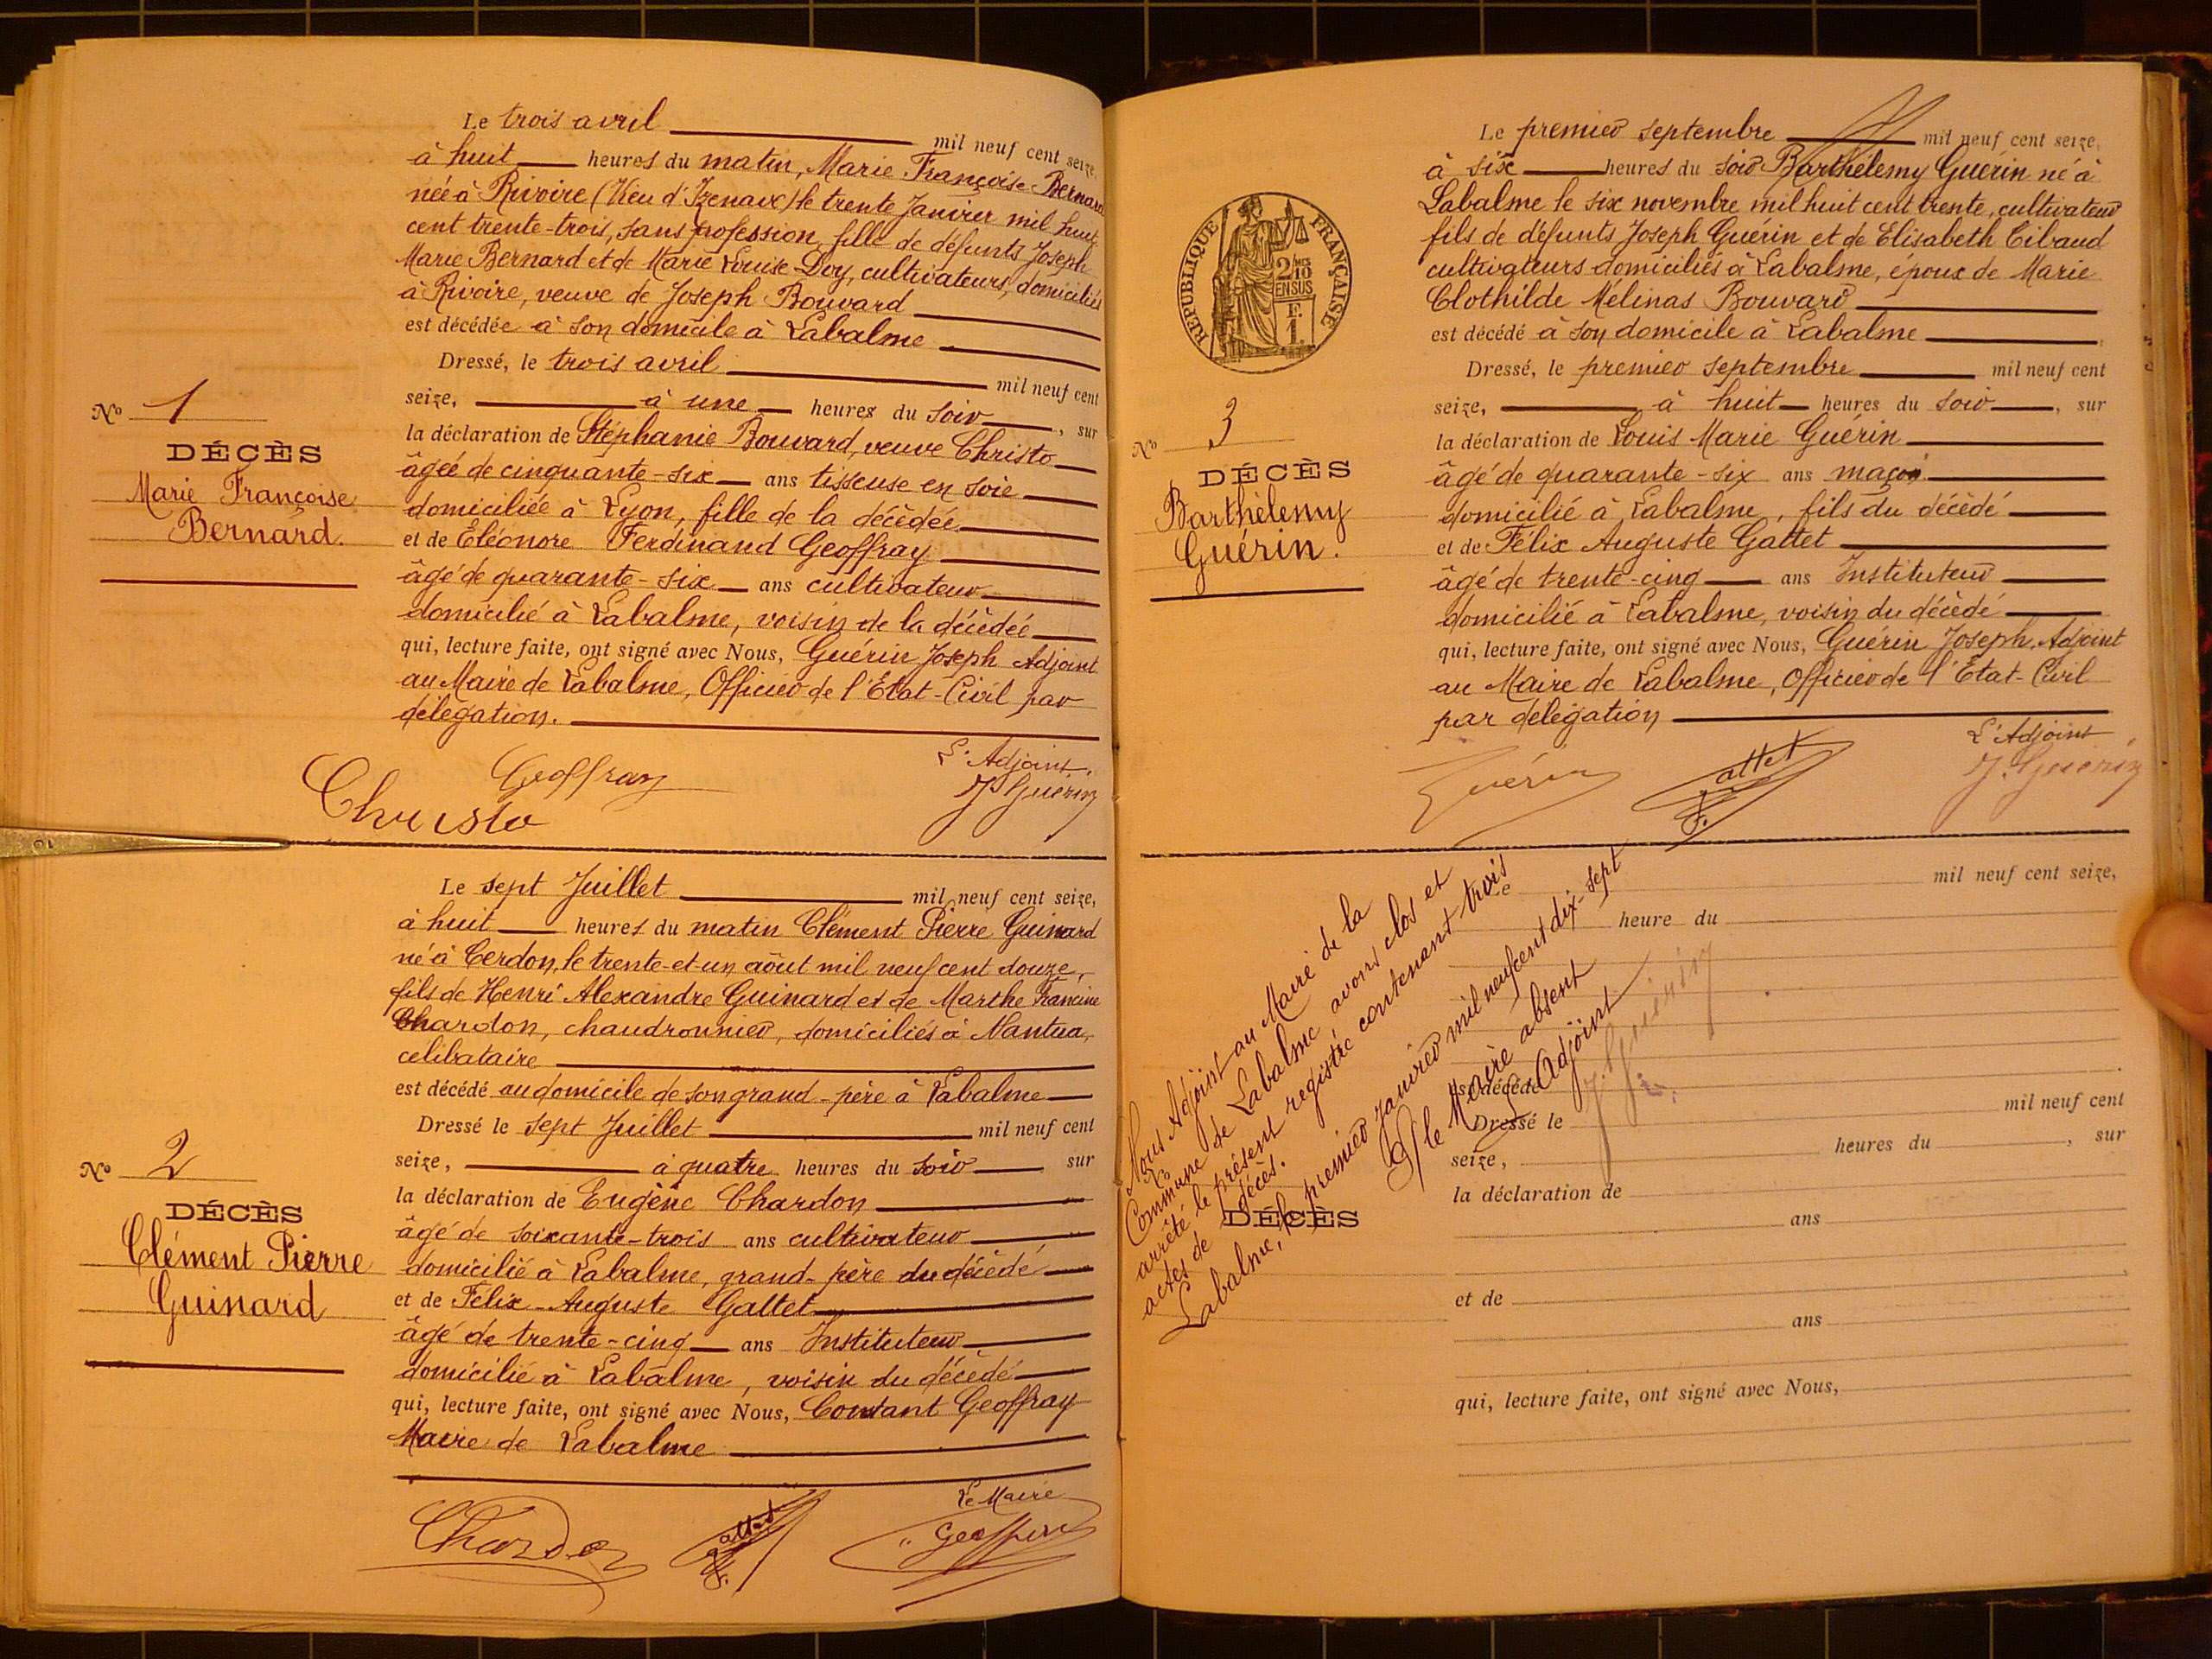 Le trois avril mil neuf cent seize,
à huit heures du matin, Marie Françoise Bernard
née à Rivoire (Vieu d'Izenave) le trente Janvier mil huit
cent trente-trois, sans profession, fille de défunts Joseph
Marie Bernard et de Marie Louise Doy, cultivateurs, domiciliés
à Rivoire, veuve de Joseph Bouvard
est décédée à son domicile à Labalme
Dressé, le trois avril mil neuf cent
seize, à une heures du soir, sur
la déclaration de Stéphanie Bouvard, veuve Christo
âgée de cinquante-six ans tisseuse en soie
domiciliée à Lyon, fille de la décédée
et de Eléonore Ferdinand Geoffray
âgé de quarante-six ans cultivateur
domicilié à Labalme, voisin de la décédée
qui, lecture faite, ont signé avec Nous, Guérin Joseph Adjoint
au Maire de Labalme, Officier de l'Etat-Civil par
délégation.
L'Adjoint,
Geoffray
J Guérin
Christo
No 1
DÉCÈS
Marie Françoise
Bernard.
Le sept Juillet mil neuf cent seize,
à huit heures du matin Clément Pierre Guinard
né à Cerdon, le trente-et-un août mil neuf cent douze,
fils de Henri Alexandre Guinard et de Marthe Francine
Chardon, chaudronnier, domiciliés à Nantua,
célibataire
est décédé au domicile de son grand-père à Labalme
Dressé le sept Juillet mil neuf cent
seize, à quatre heures du soir sur
la déclaration de Eugène Chardon
âgé de soixante-trois ans cultivateur
domicilié à Labalme, grand-père du décédé
et de Félix Auguste Gattet
âgé de trente-cinq ans Instituteur
domicilié à Labalme, voisin du décédé
qui, lecture faite, ont signé avec Nous, Constant Geoffray
Maire de Labalme
Le Maire
Chardon
F. Gattet
Geoffray
No 2
DÉCÈS
Clément Pierre
Guinard
Le premier septembre mil neuf cent seize,
à six heures du soir Barthélemy Guérin né à
Labalme le six novembre mil huit cent trente, cultivateur
fils de défunts Joseph Guérin et de Elisabeth Tibaud
cultivateurs domiciliés à Labalme, époux de Marie
Clothilde Mélinas Bouvard
est décédé à son domicile à Labalme
Dressé, le premier septembre mil neuf cent
seize, à huit heures du soir, sur
la déclaration de Louis Marie Guérin
âgé de quarante-six ans maçon
domicilié à Labalme, fils du décédé
et de Félix Auguste Gattet
âgé de trente-cinq ans Instituteur
domicilié à Labalme, voisin du décédé
qui, lecture faite, ont signé avec Nous, Guérin Joseph, Adjoint
au Maire de Labalme, Officier de l'Etat-Civil
par délégation
L'Adjoint
Guérin
F. Gattet
J. Guérin
RÉPUBLIQUE FRANÇAISE
2/10 EN SUS
F. 1.
No 3
DÉCÈS
Barthélemy
Guérin.
Le mil neuf cent seize,
heure du
est décédé
Dressé le mil neuf cent
seize, heures du , sur
la déclaration de
ans
et de
ans
qui, lecture faite, ont signé avec Nous,
DÉCÈS
Nous Adjoint au Maire de la
Commune de Labalme avons clos et
arrêté le présent registre contenant trois
actes de décès.
Labalme, le premier Janvier mil neuf cent dix-sept
P/ le Maire absent
L'Adjoint
J. Guérin